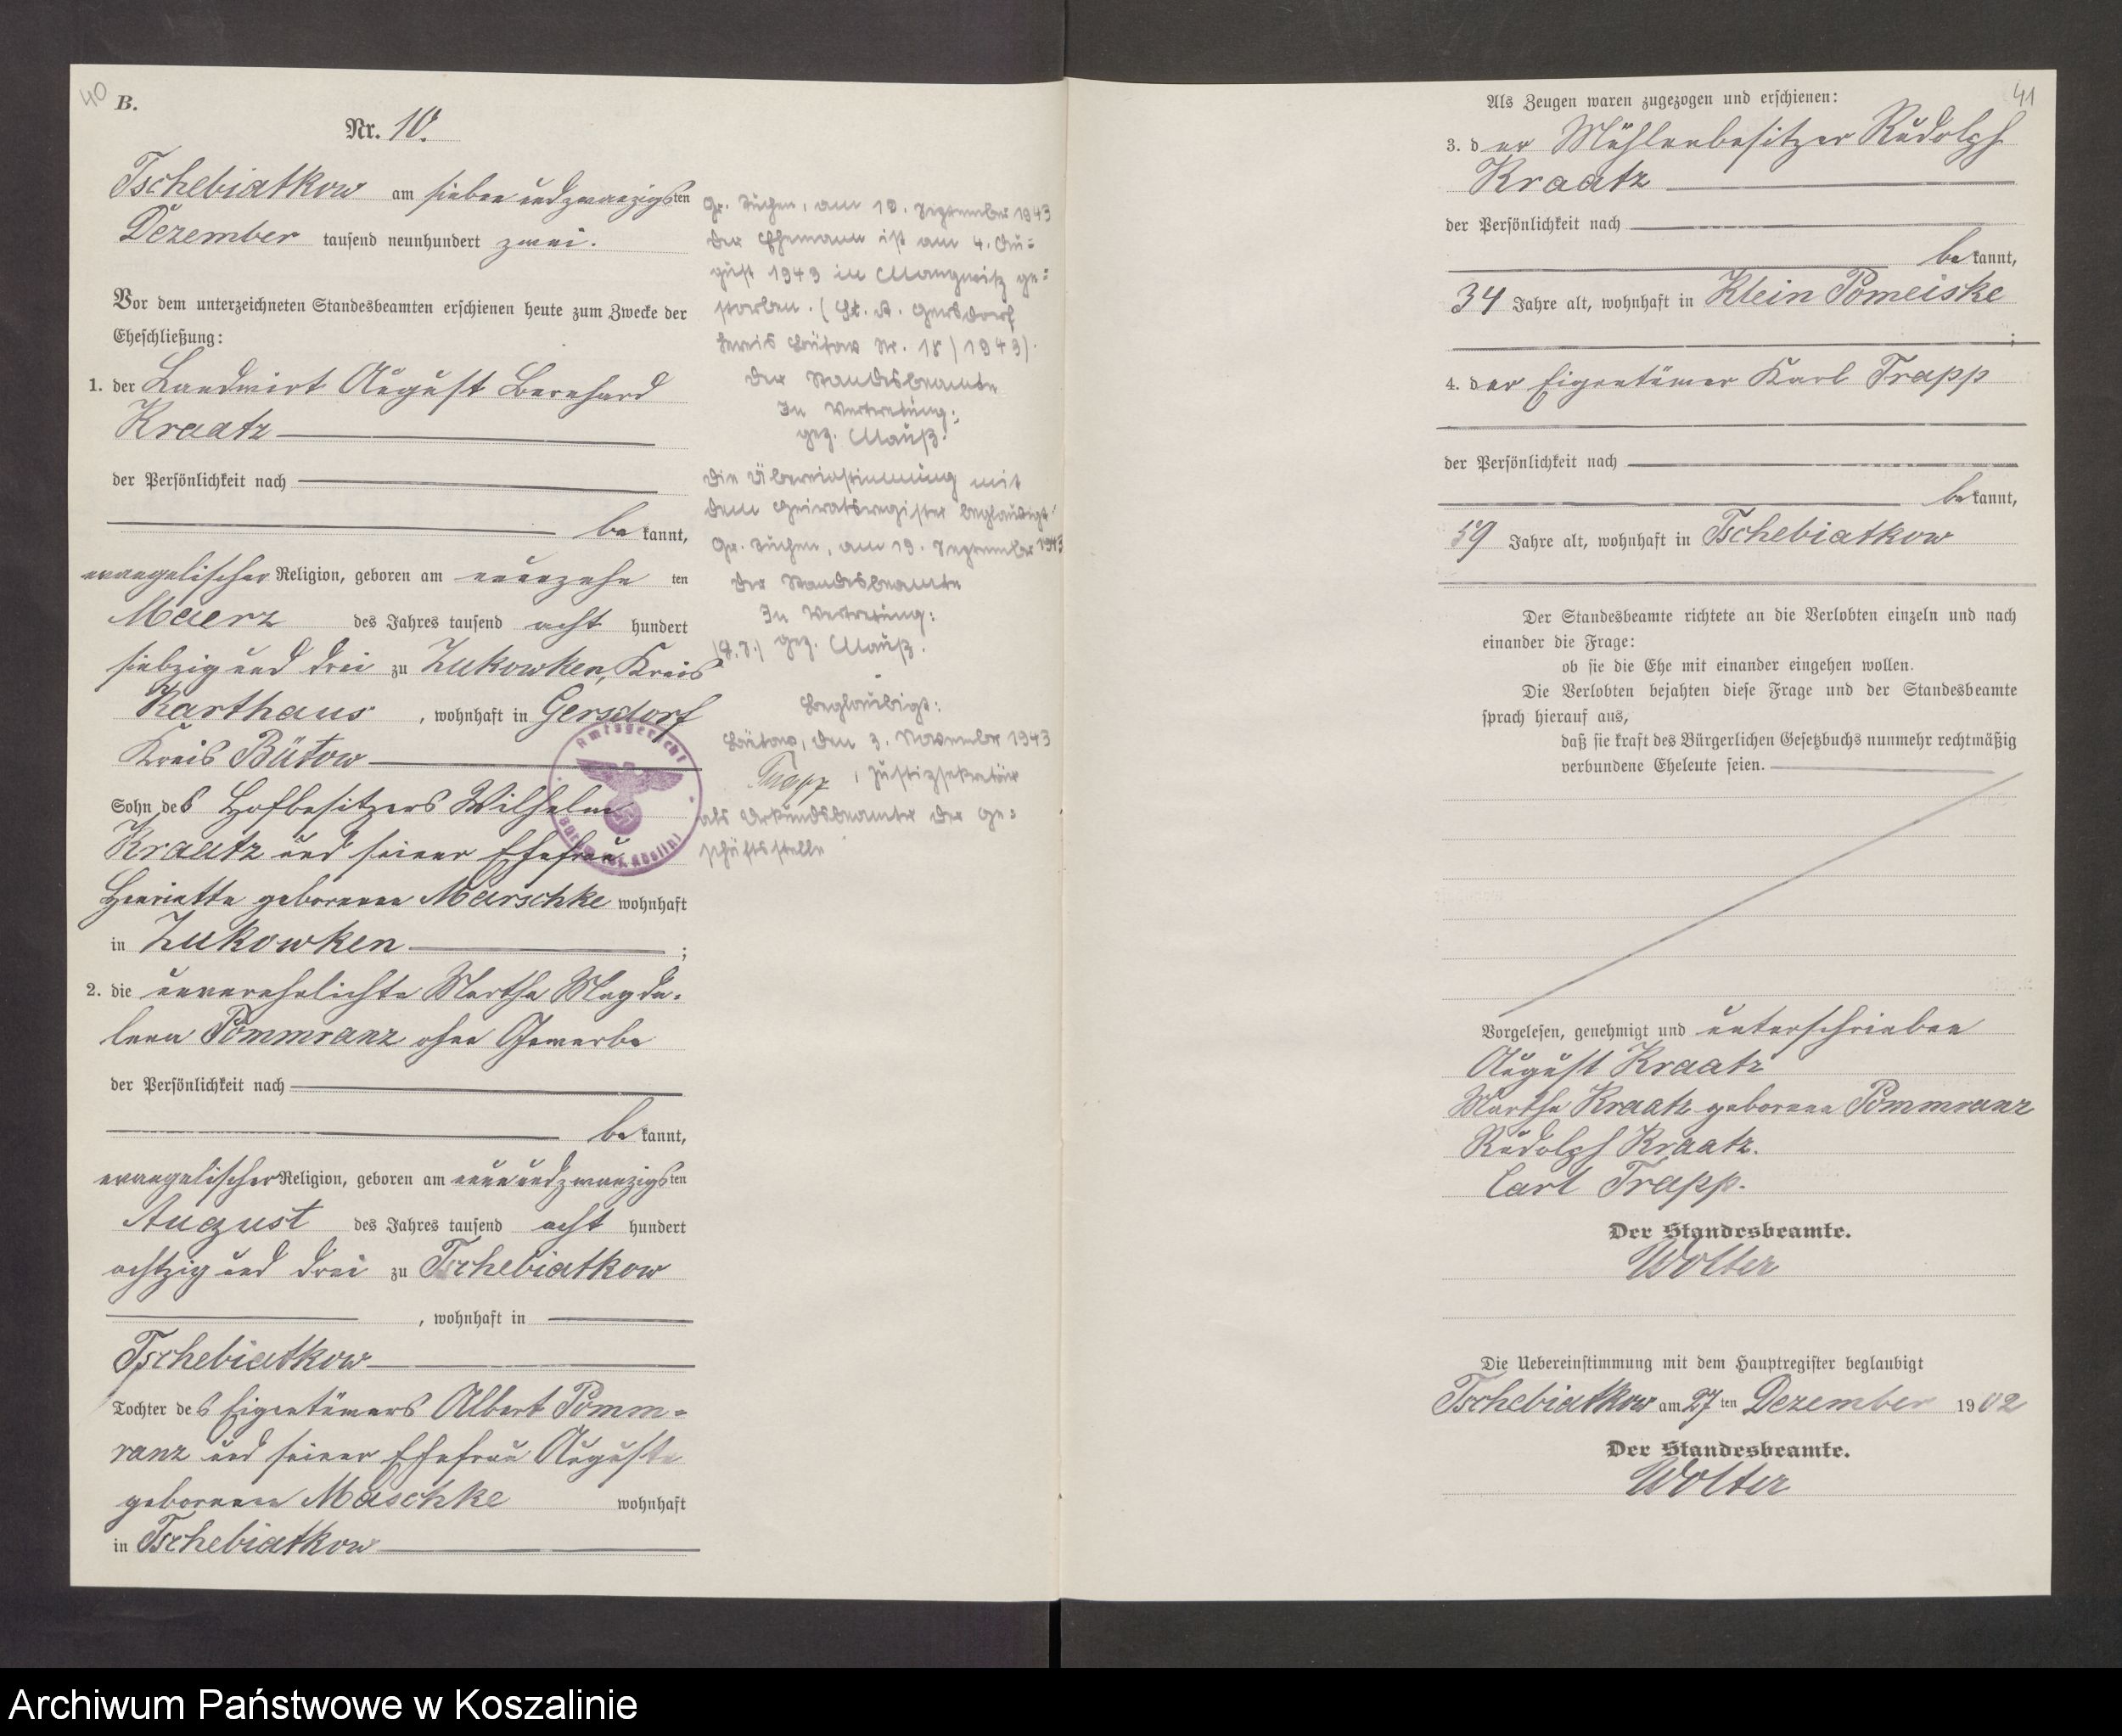 40
B.
Nr. 10.
Tschebiatkow am sieben und zwanzigsten
Dezember tausend neunhundert zwei.
Vor dem unterzeichneten Standesbeamten erschienen heute zum Zwecke der
Eheschließung:
1. der Landwirt August Bernhard
Kraatz
der Persönlichkeit nach
bekannt,
evangelischer Religion, geboren am neunzehnten
Maerz des Jahres tausend acht hundert
siebzig und drei zu Zukowken, Kreis
Karthaus, wohnhaft in Gersdorf
Kreis Bütow
Sohn des Hofbesitzers Wilhelm
Kraatz und seiner Ehefrau
Henriette geborenen Marschke wohnhaft
in Zukowken ;
2. die unverehelichte Martha Magda-
lena Pommranz ohne Gewerbe
der Persönlichkeit nach
bekannt,
evangelischer Religion, geboren am neun und zwanzigsten
August des Jahres tausend acht hundert
achtzig und drei zu Tschebiatkow
, wohnhaft in
Tschebiatkow
Tochter des Eigentümers Albert Pomm-
ranz und seiner Ehefrau Auguste
geborenen Maschke wohnhaft
in Tschebiatkow
Gr. Tuchen, am 19. September 1943
Der Ehemann ist am 4. Au-
gust 1943 in Mangwitz ge-
storben. (St. A. Gersdorf
Kreis Bütow Nr. 18/1943).
Der Standesbeamte
In Vertretung:
gez. Mauß.
Die Übereinstimmung mit
dem Heiratsregister beglaubigt
Gr. Tuchen, am 19. September 1943
Der Standesbeamte
In Vertretung:
(L.S.) gez. Mauß.
Beglaubigt:
Bütow, den 3. November 1943
Trapp, Justizsekretär
als Urkundsbeamter der Ge-
schäftsstelle
Amtsgericht
41
Als Zeugen waren zugezogen und erschienen:
3. der Mühlenbesitzer Rudolph
Kraatz
der Persönlichkeit nach
bekannt,
34 Jahre alt, wohnhaft in Klein Pomeiske
;
4. der Eigentümer Karl Trapp
der Persönlichkeit nach
bekannt,
59 Jahre alt, wohnhaft in Tschebiatkow
Der Standesbeamte richtete an die Verlobten einzeln und nach
einander die Frage:
ob sie die Ehe mit einander eingehen wollen.
Die Verlobten bejahten diese Frage und der Standesbeamte
sprach hierauf aus,
daß sie kraft des Bürgerlichen Gesetzbuchs nunmehr rechtmäßig
verbundene Eheleute seien.
Vorgelesen, genehmigt und unterschrieben
August Kraatz
Martha Kraatz geborene Pommranz
Rudolph Kraatz.
Carl Trapp.
Der Standesbeamte.
Wolter
Die Uebereinstimmung mit dem Hauptregister beglaubigt
Tschebiatkow am 27ten Dezember 1902
Der Standesbeamte.
Wolter
Archiwum Państwowe w Koszalinie